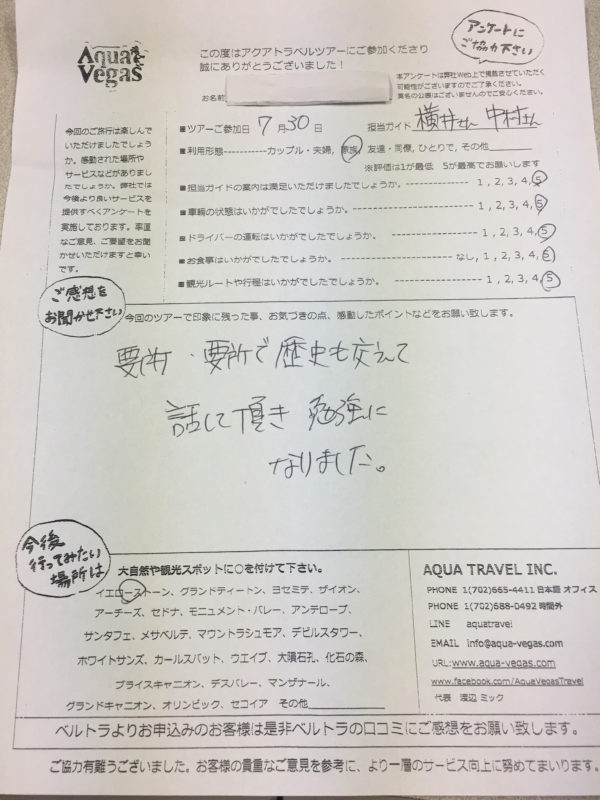 Aqua
Vegas
この度はアクアトラベルツアーにご参加くださり
誠にありがとうございました！
アンケートに
ご協力下さい
本アンケートは弊社Web上で掲載させていただく
可能性がございますのでご了承ください。
実名の公表はございませんのでご安心ください。
お名前
今回のご旅行は楽しんで
いただけましたでしょう
か。感動された場所や
サービスなどがありまし
たでしょうか。弊社では
今後より良いサービスを
提供すべくアンケートを
実施しております。率直
なご意見、ご要望をお聞
かせいただけますと幸い
です。
■ツアーご参加日 7 月 30 日 担当ガイド 横井さん 中村さん
■利用形態-----------カップル・夫婦, 家族, 友達・同僚, ひとりで, その他
※評価は1が最低 5が最高でお願いします
■担当ガイドの案内は満足いただけましたでしょうか。---------------- 1, 2, 3, 4, 5
■車輌の状態はいかがでしたでしょうか。---------------- 1, 2, 3, 4, 5
■ドライバーの運転はいかがでしたでしょうか。---------------- 1, 2, 3, 4, 5
■お食事はいかがでしたでしょうか。---------------- なし, 1, 2, 3, 4, 5
■観光ルートや行程はいかがでしたでしょうか。---------------- 1, 2, 3, 4, 5
ご感想を
お聞かせ下さい
今回のツアーで印象に残った事、お気づきの点、感動したポイントなどをお願い致します。
要所・要所で歴史も交えて
話して頂き 勉強に
なりました。
今後
行ってみたい
場所は
大自然や観光スポットに○を付けて下さい。
イエローストーン、グランドティートン、ヨセミテ、ザイオン、
アーチーズ、セドナ、モニュメント・バレー、アンテロープ、
サンタフェ、メサベルデ、マウントラシュモア、デビルスタワー、
ホワイトサンズ、カールスバット、ウエイブ、大隕石孔、化石の森、
ブライスキャニオン、デスバレー、マンザナール、
グランドキャニオン、オリンピック、セコイア その他
AQUA TRAVEL INC.
PHONE 1(702)665-4411 日本語 オフィス
PHONE 1(702)688-0492 時間外
LINE aquatravel
EMAIL info@aqua-vegas.com
URL:www.aqua-vegas.com
www.facebook.com/AquaVegasTravel
代表 渡辺 ミック
ベルトラよりお申込みのお客様は是非ベルトラの口コミにご感想をお願い致します。
ご協力有難うございました。お客様の貴重なご意見を参考に、より一層のサービス向上に努めてまいります。